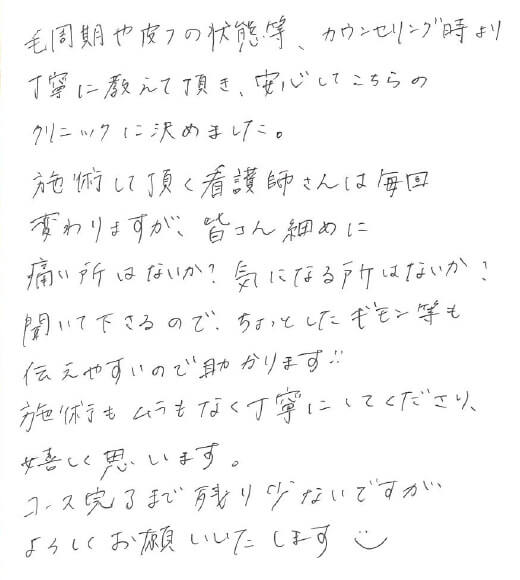 毛周期や皮フの状態等、カウンセリング時より
丁寧に教えて頂き、安心してこちらの
クリニックに決めました。
施術して頂く看護師さんは毎回
変わりますが、皆さん細めに
痛い所はないか?気になる所はないか?
聞いて下さるので、ちょっとしたギモン等も
伝えやすいので助かります!!
施術もムラもなく丁寧にしてくださり、
嬉しく思います。
コース完了まで残り少ないですが
よろしくお願いいたします